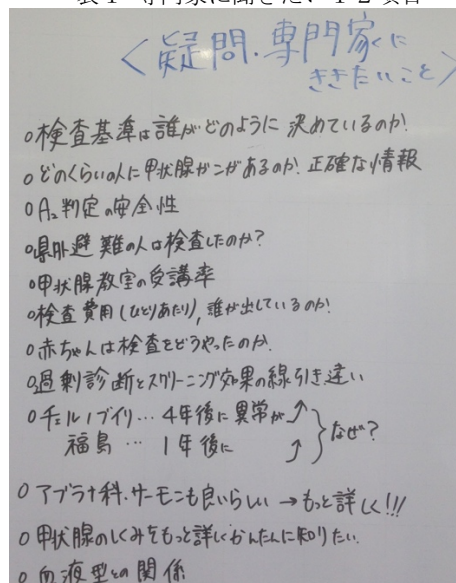 表1 専門家に聞きたい12項目
<疑問・専門家に
ききたいこと>
○検査基準は誰がどのように決めているのか!
○どのくらいの人に甲状腺ガンがあるのか. 正確な情報
○A₂判定の安全性
○県外避難の人は検査したのか?
○甲状腺教室の受講率
○検査費用(ひとりあたり), 誰が出しているのか!
○赤ちゃんは検査をどうやったのか.
○過剰診断とスクリーニング効果の線引き違い
○チェルノブイリ… 4年後に異常が↑
福島 … 1年後に ↑ } なぜ?
○アブラナ科.サーモンも良いらしい →もっと詳しく!!!
○甲状腺のしくみをもっと詳しくかんたんに知りたい.
○血液型との関係